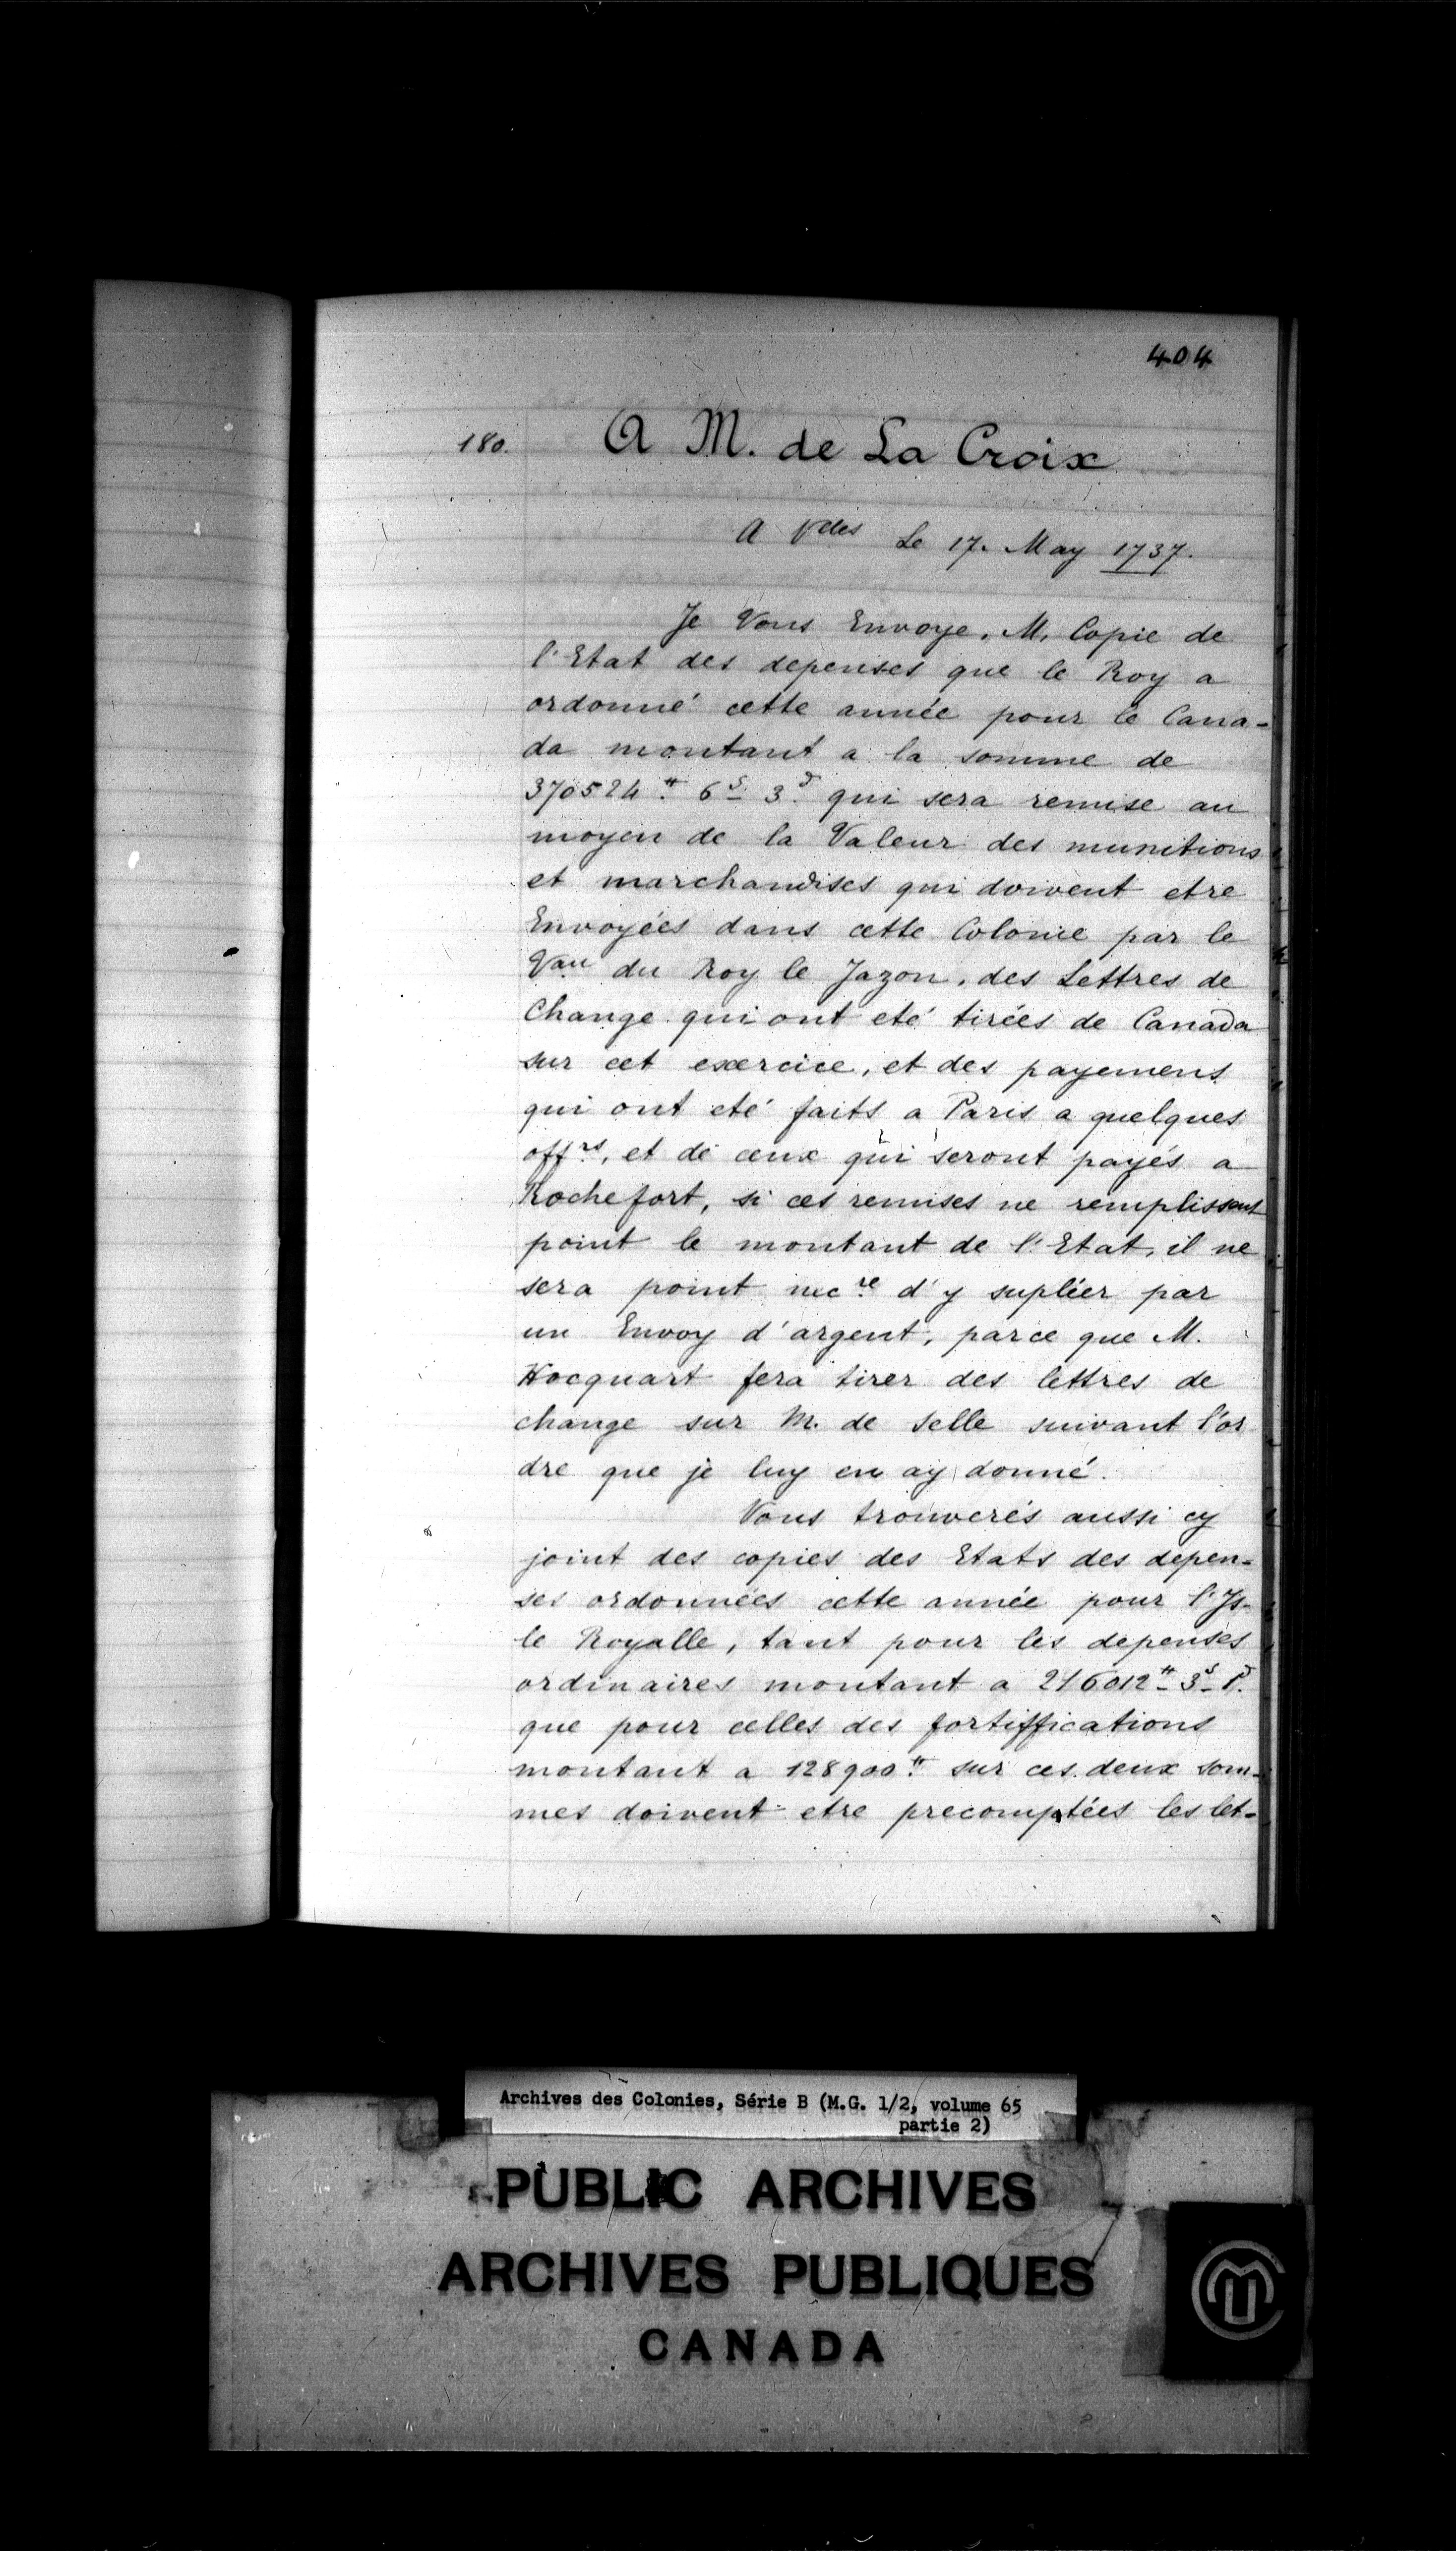 404
180. A M. de La Croix
A Vlles Le 17. May 1737.
Je Vous Envoye, M, Copie de
l'Etat des depenses que le Roy a
ordonné cette année pour le Cana-
da montant a la somme de
370524.tt 6s 3.d qui sera remise au
moyen de la Valeur des munitions
et marchandises qui doivent etre
Envoyées dans cette Colonie par le
Vau du Roy le Jazon, des Lettres de
Change qui ont eté tirées de Canada
sur cet exercice, et des payemens
qui ont eté faits a Paris a quelques
offrs, et de ceux qui seront payés a
Rochefort, si ces remises ne remplissent
point le montant de l'Etat, il ne
sera point necre d'y supléer par
un Envoy d'argent, parce que M.
Hocquart fera tirer des lettres de
change sur M. de Selle suivant l'or
dre que je luy en ay donné.
Vous trouverés aussi cy
joint des copies des Etats des depen-
ses ordonnées cette année pour l'Is-
le Royalle, tant pour les depenses
ordinaires montant a 3s
que pour celles des fortiffications
montant a 128900.tt sur ces deux som-
mes doivent etre precomptées les let-
Archives des Colonies, Série B (M.G. 1/2, volume 65
partie 2)
PUBLIC ARCHIVES
ARCHIVES PUBLIQUES
CANADA